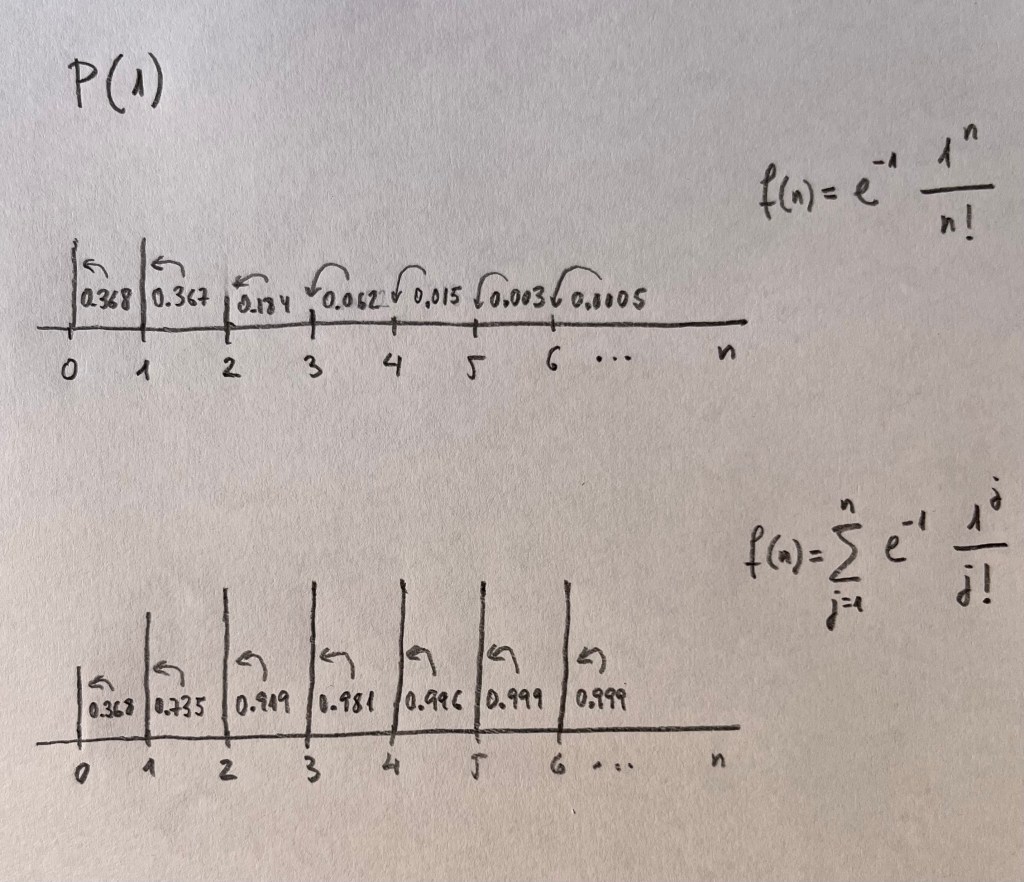 P(1)
f(n) = e^{-1} \frac{1^n}{n!}
0.368 0.367 0.184 0.062 0.015 0.003 0.0005
0 1 2 3 4 5 6 ... n
f(n) = \sum_{j=1}^{n} e^{-1} \frac{1^j}{j!}
0.368 0.735 0.919 0.981 0.996 0.999 0.999
0 1 2 3 4 5 6 ... n